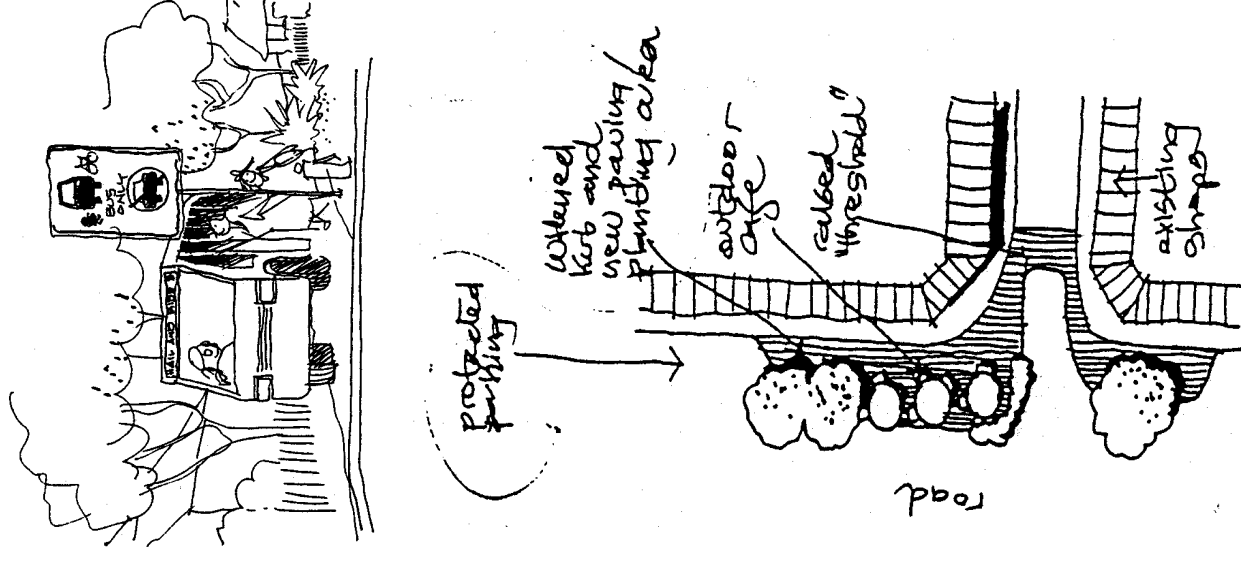 BUS
ONLY
protected
parking
widened
kerb and
new paving/
planting area
outdoor
cafe
raised
"threshold"
existing
shops
road